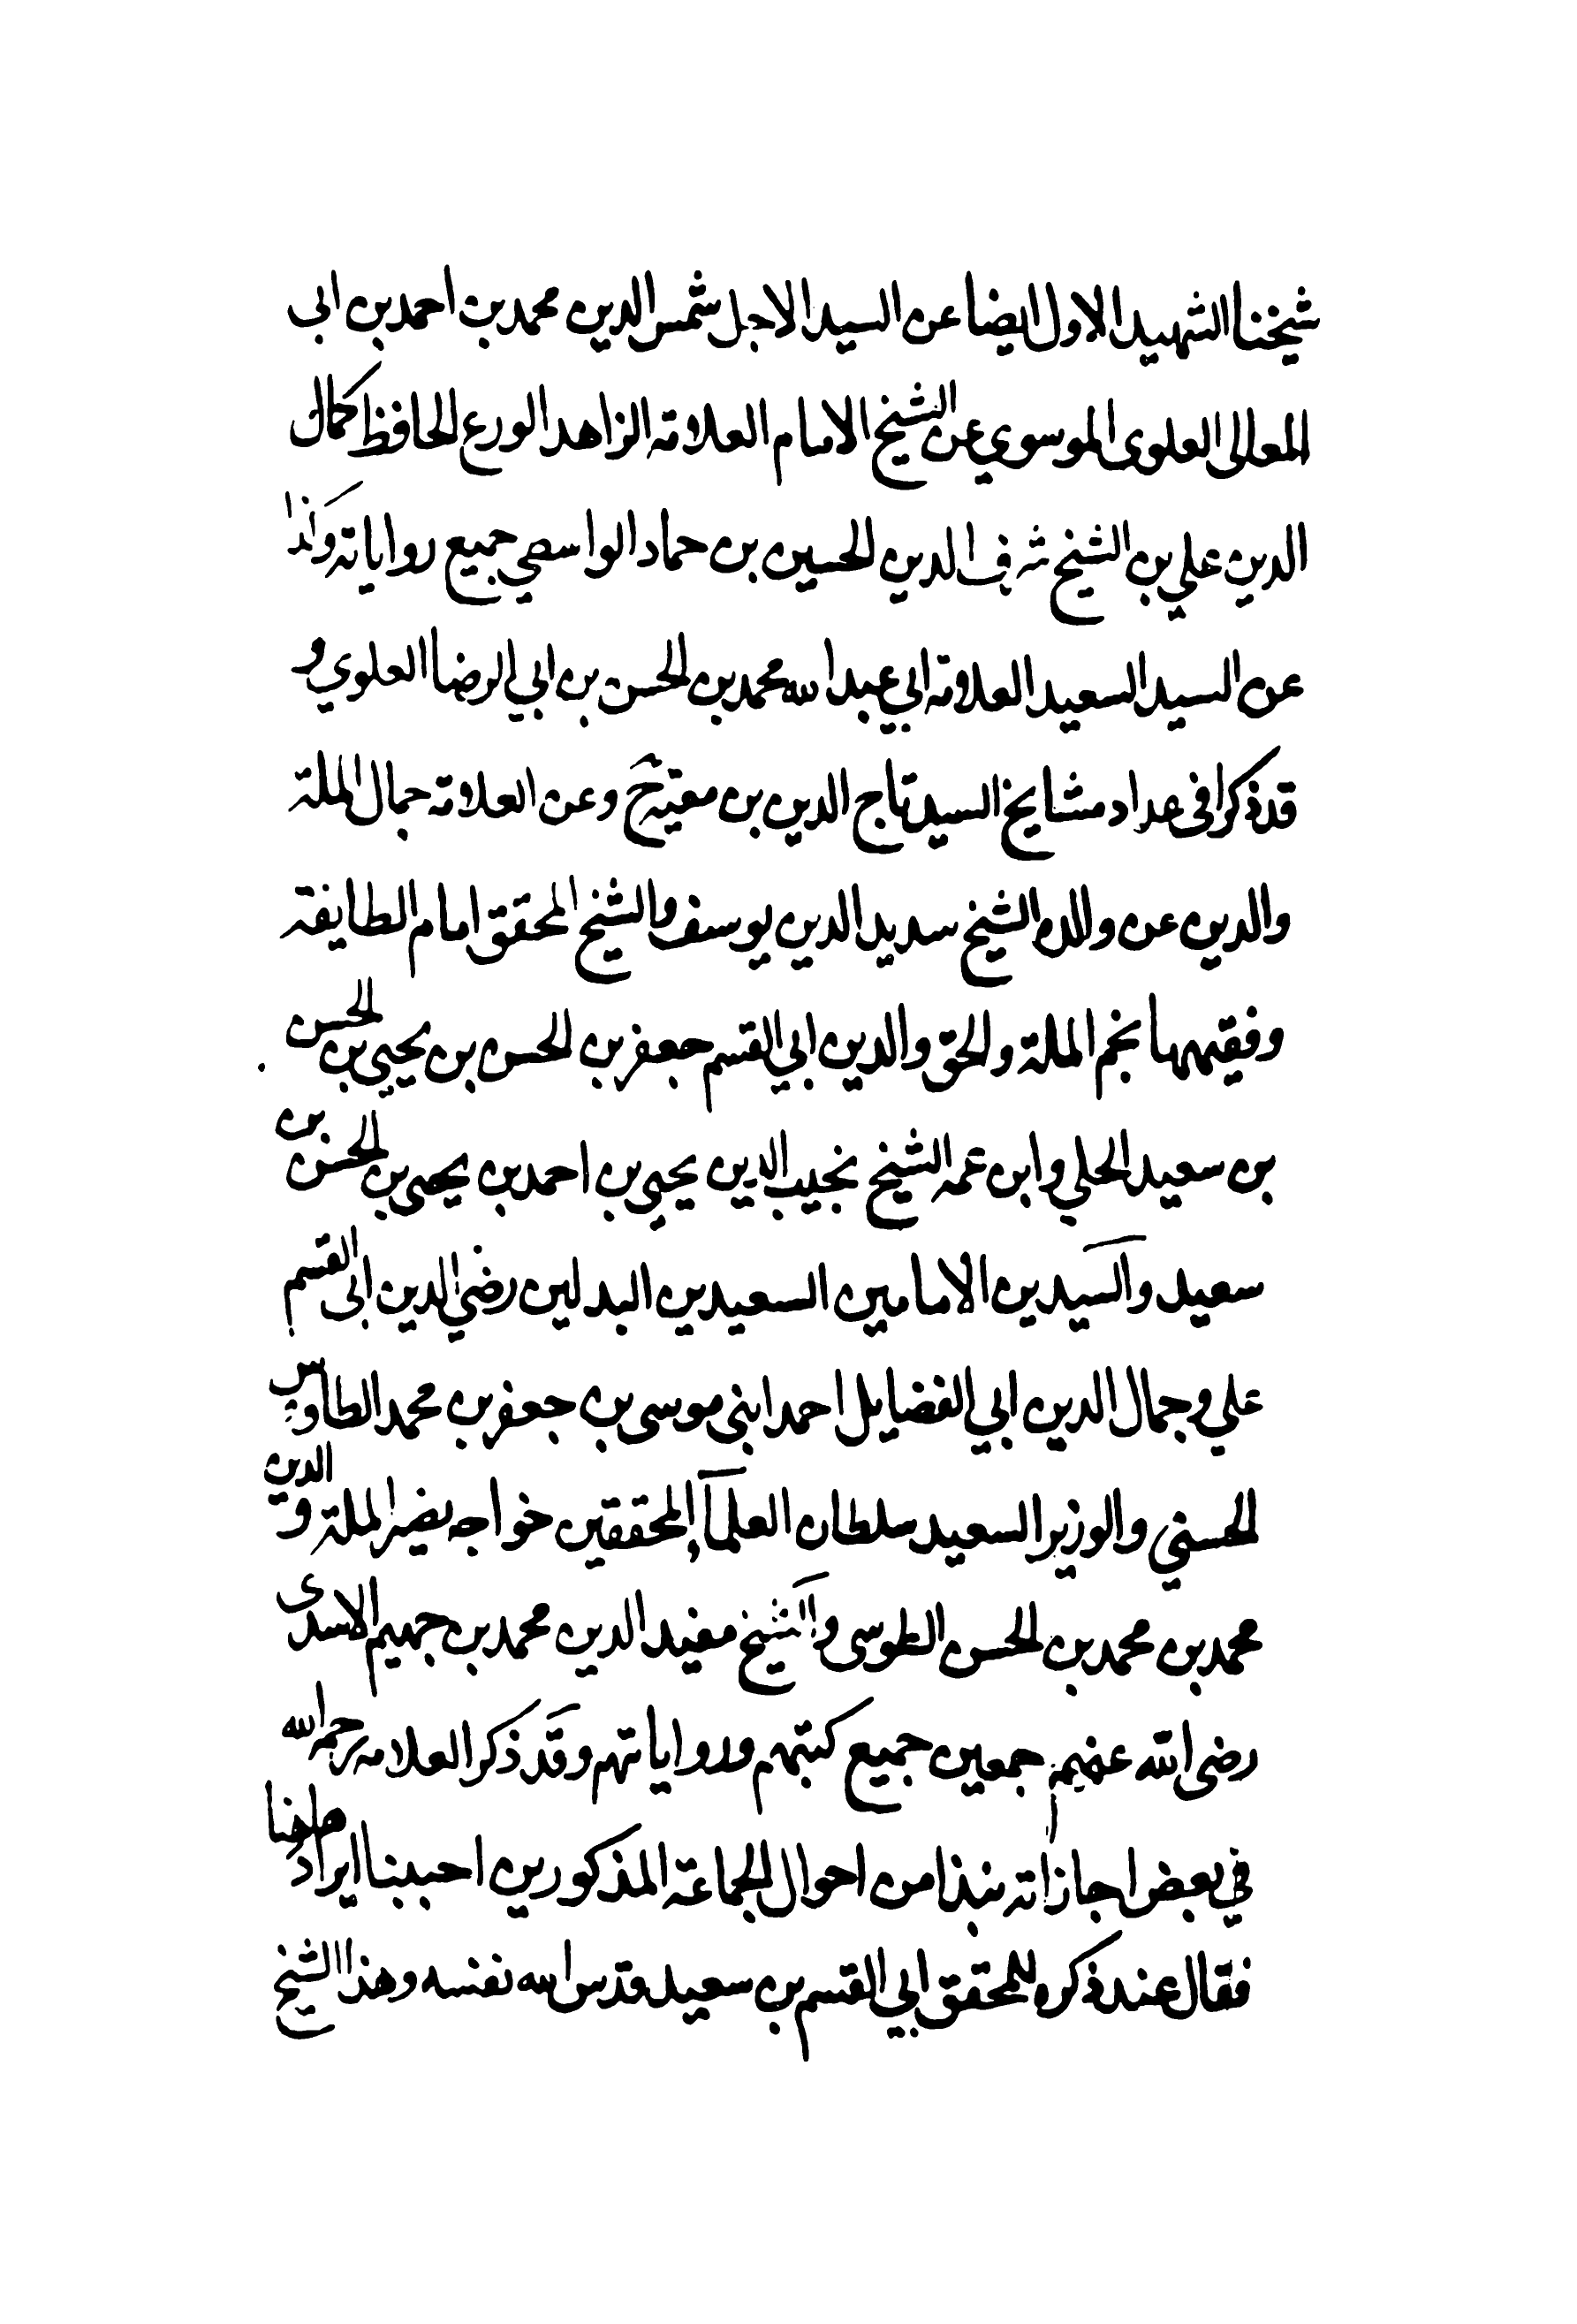 شيخنا الشهيد الاول ايضا عن السيد الاجل شمس الدين محمد بن احمد بن ابى
المعالى العلوى الموسوي عن الشيخ الامام العلامة الزاهد الورع الحافظ كمال
الدين علي بن الشيخ شرف الدين الحسين بن حماد الواسطي جميع رواياته وكذا
عن السيد السعيد العلامة ابي عبد الله محمد بن الحسن بن ابي الرضا العلوي و
قد ذكرا فى عداد مشايخ السيد تاج الدين بن معية ح وعن العلامة جمال الملة
والدين عن والده الشيخ سديد الدين يوسف والشيخ المحقق امام الطايفة
وفقيهها نجم الملة والحق والدين ابي القسم جعفر بن الحسن بن يحيى بن الحسن
بن سعيد الحلي وابن عمه الشيخ نجيب الدين يحيى بن احمد بن يحيى بن الحسن بن
سعيد والسيدين الامامين السعيدين البدلين رضي الدين ابى القسم
علي وجمال الدين ابي الفضايل احمد ابنى موسى بن جعفر بن محمد الطاوس
الحسني والوزير السعيد سلطان العلمآء المحققين خواجه نصير الملة والدين
محمد بن محمد بن الحسن الطوسى والشيخ مفيد الدين محمد بن جهيم الاسدى
رضى الله عنهم اجمعين جميع كتبهم ورواياتهم وقد ذكر العلامه رحمه الله
في بعض اجازاته نبذا من احوال الجماعة المذكورين احببنا ايراد ها هنا
فقال عند ذكره للمحقق ابي القسم بن سعيد قدس الله نفسه وهذا الشيخ